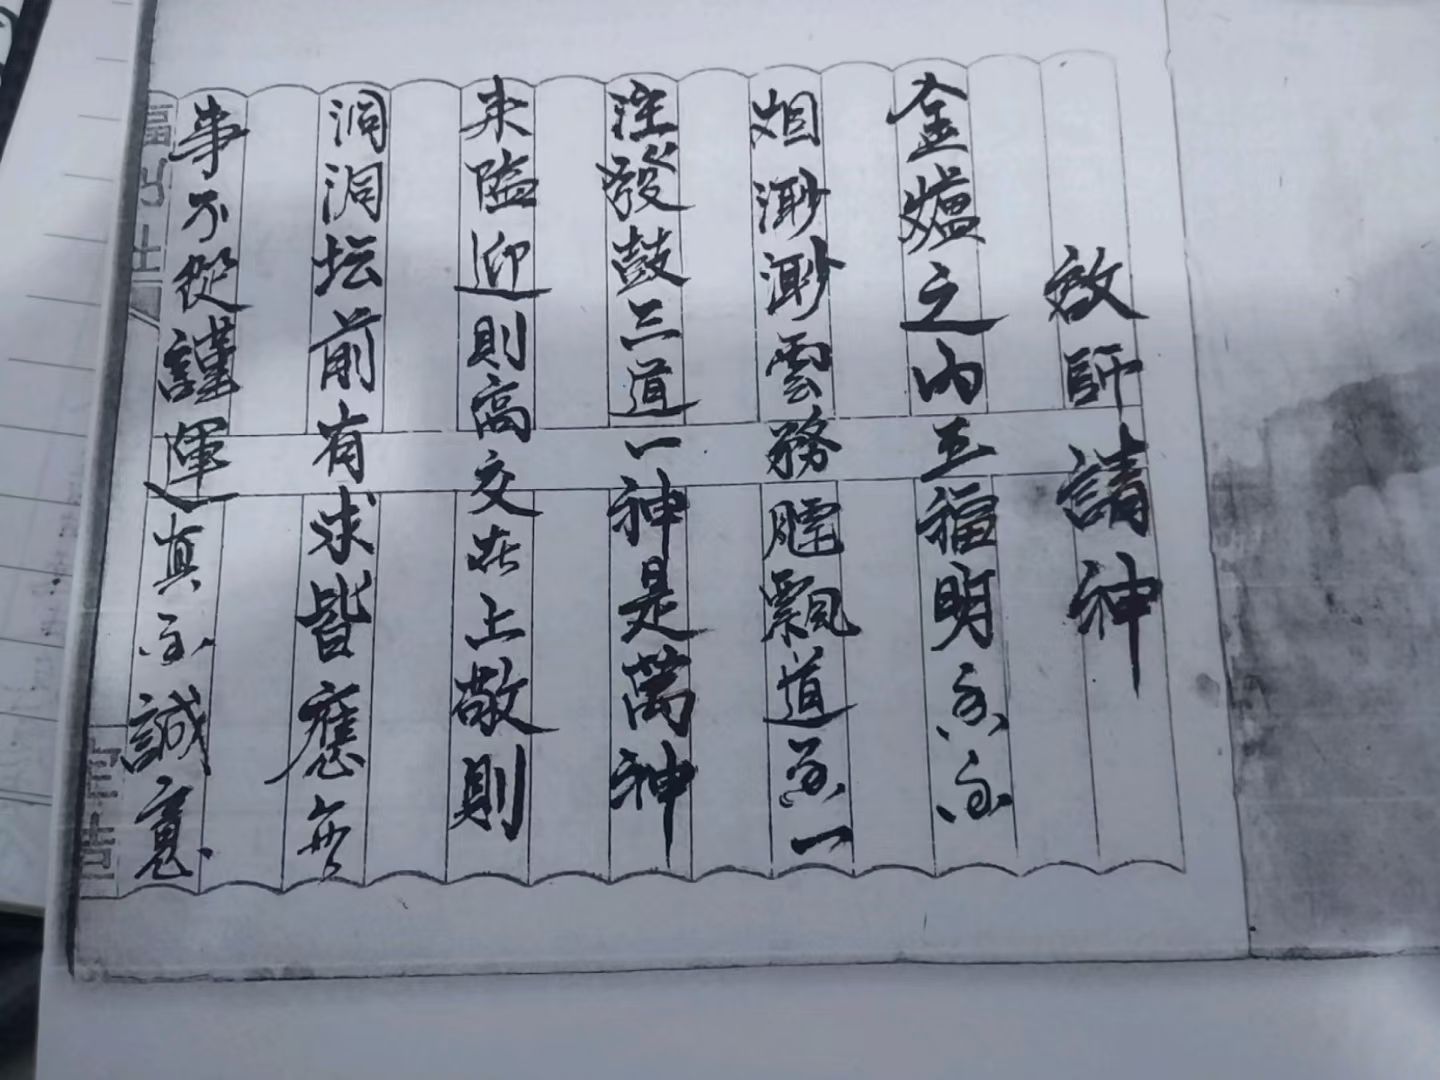 敚師請神
金爐之内五福明
烟渺渺雲務騰飄道一
注發鼓三道一神是萬神
来臨迎則高交在上敬則
洞洞坛前有求皆應無
事不從謹運真誠意